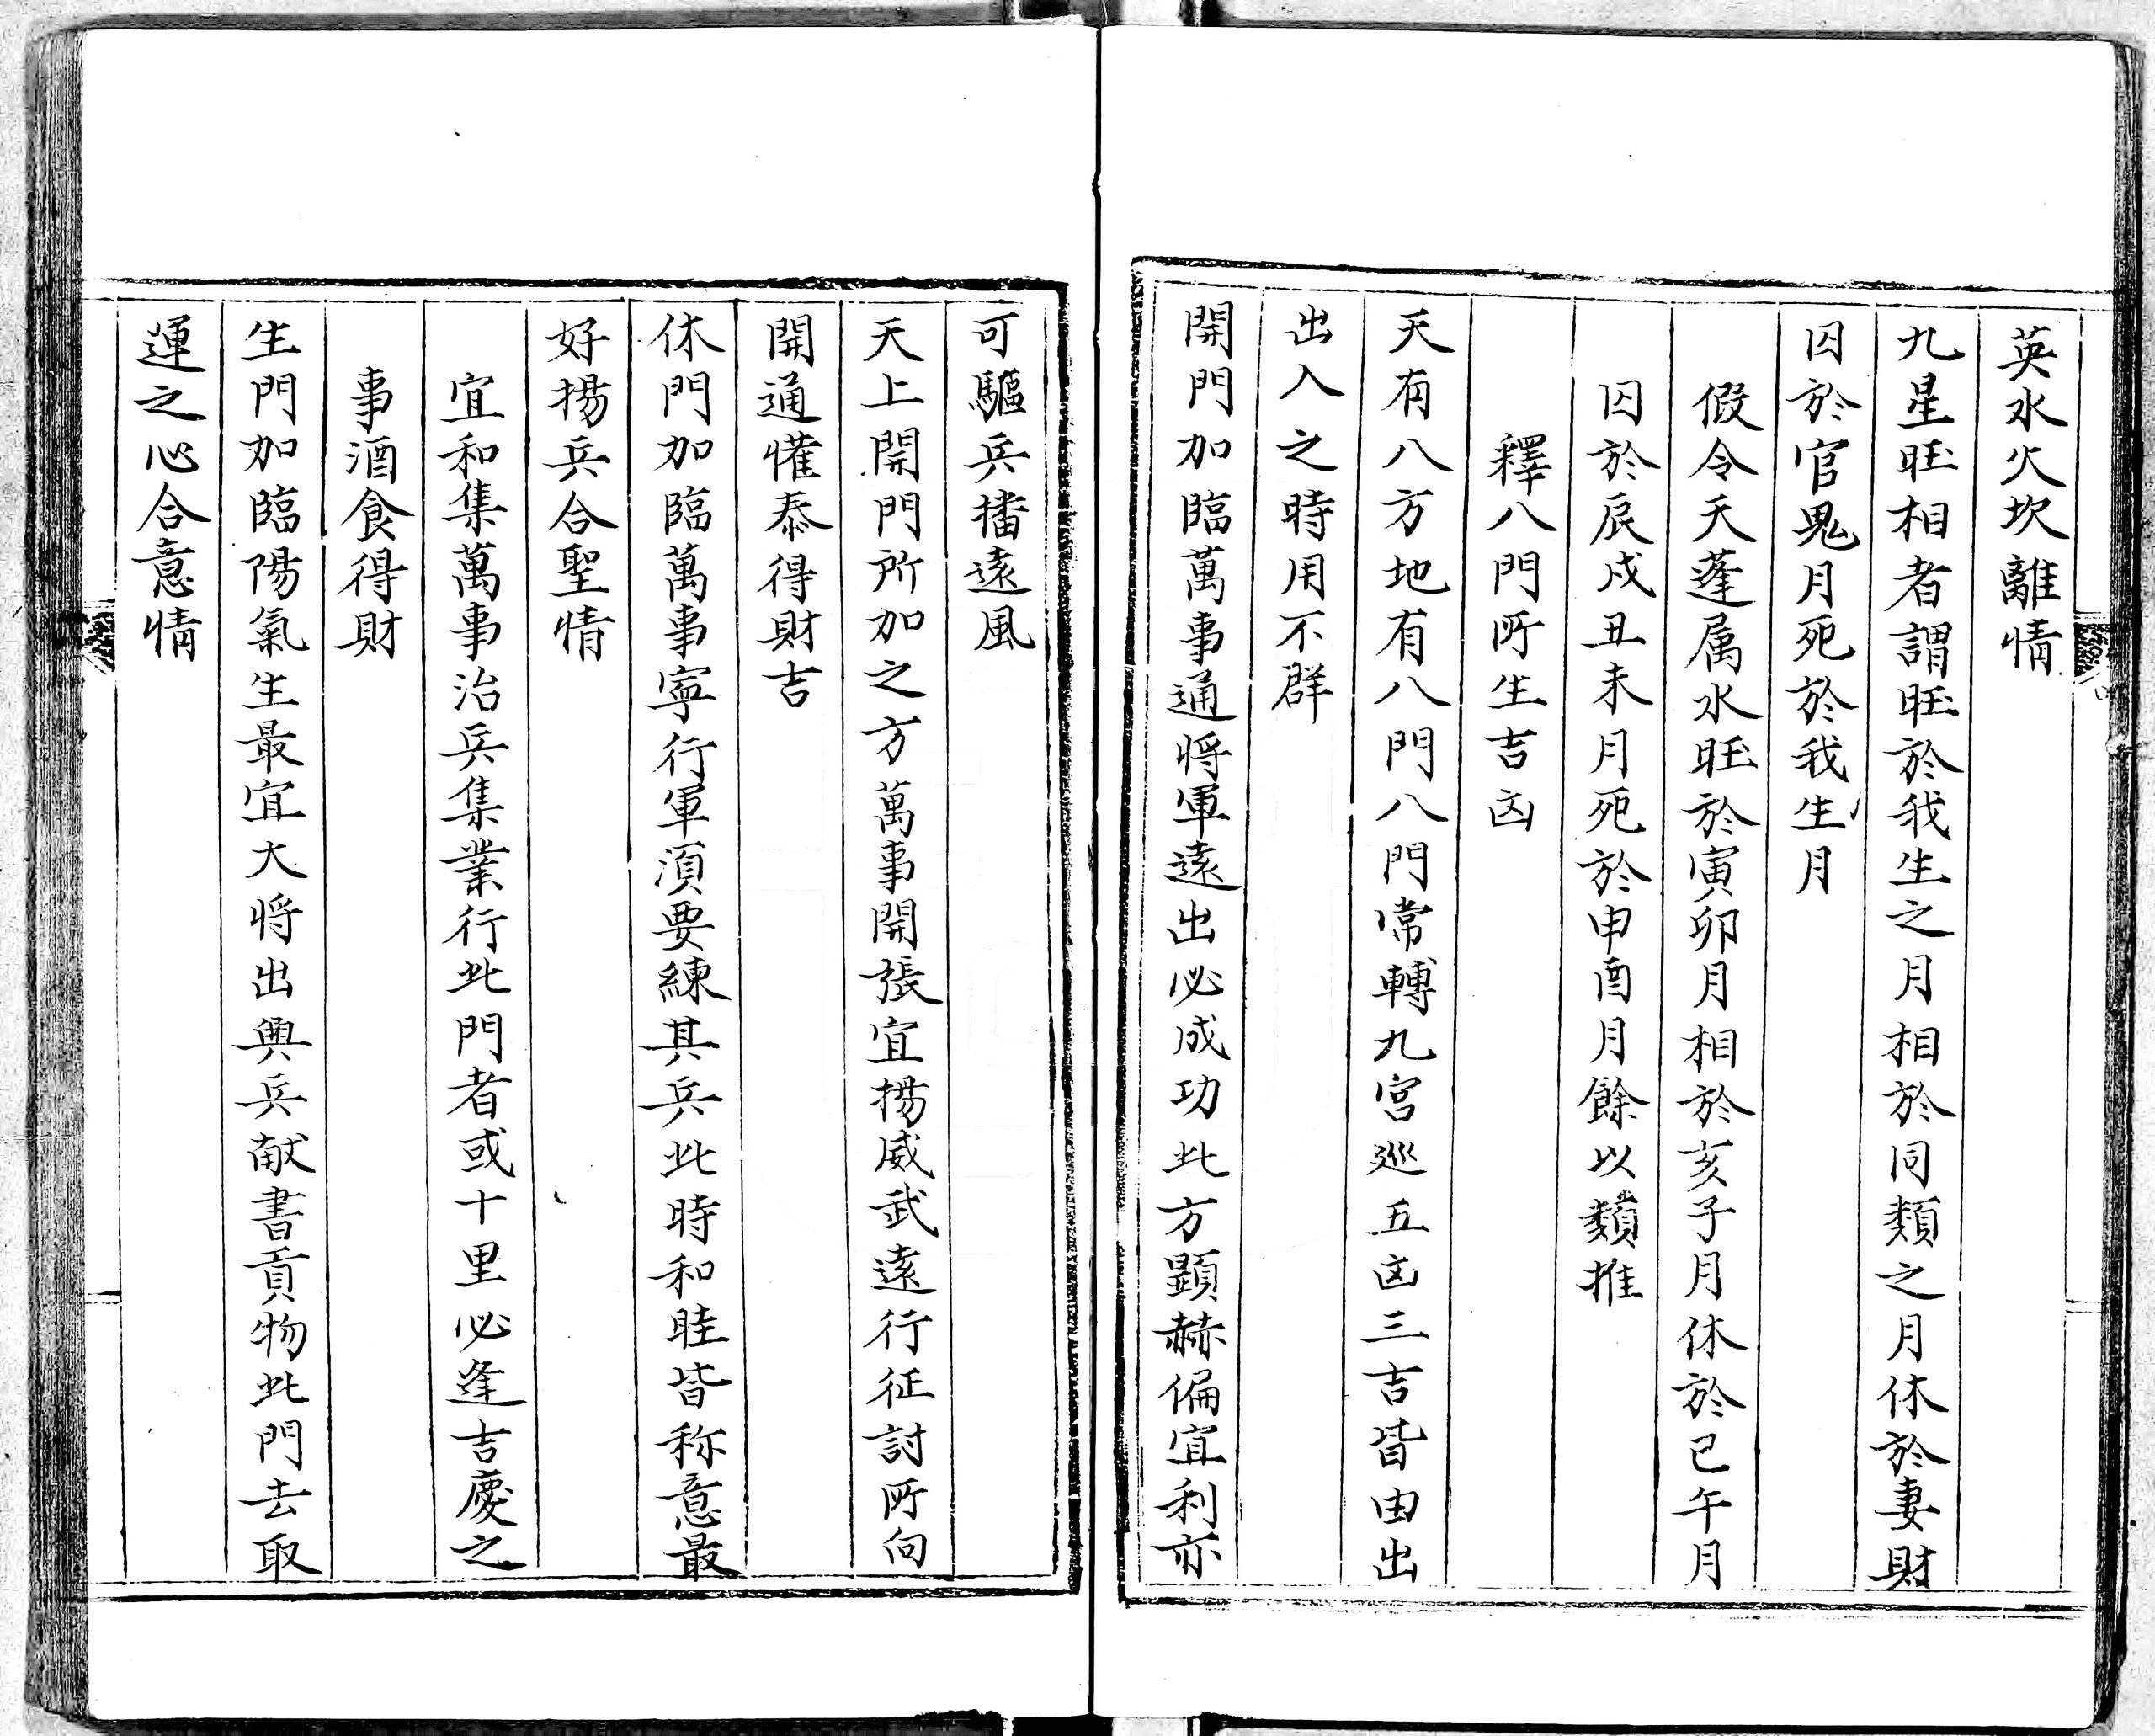 英水火坎離情
九星旺相者謂旺於我生之月相於同類之月休於妻財
囚於官鬼月死於我生月
假令天蓬属水旺於寅卯月相於亥子月休於巳午月
囚於辰戌丑未月死於申酉月餘以類推
釋八門所生吉凶
天有八方地有八門八門常轉九宮巡五凶三吉皆由出
出入之時用不群
開門加臨萬事通将軍遠出必成功此方顕赫偏宜利亦
可驅兵播遠風
天上開門所加之方萬事開張宜揚威武遠行征討所向
開通懽泰得財吉
休門加臨萬事寧行軍須要練其兵此時和眭皆称意最
好揚兵合聖情
宜和集萬事治兵集業行此門者或十里必逢吉慶之
事酒食得財
生門加臨陽氣生最宜大将出興兵献書貢物此門去取
運之心合意情